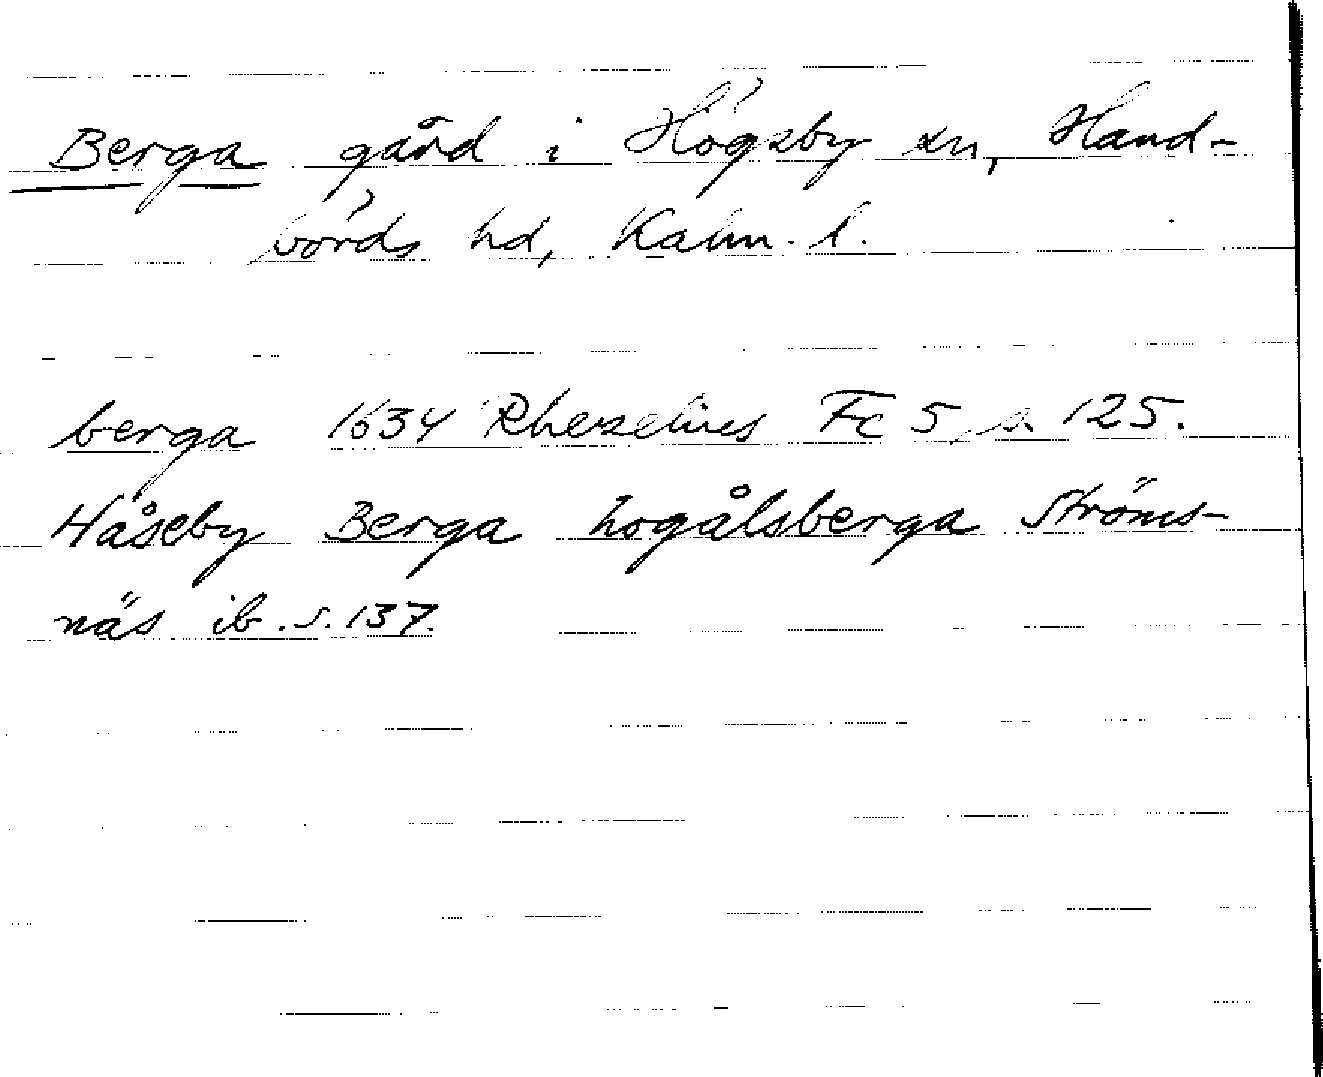 Berga gård i Högsby sn, Hand-
börds hd, Kalm. l.
berga 1634 Rhezelius Fc 5, s. 125.
Håseby Berga hogålsberga Ströms-
näs ib. s. 137.